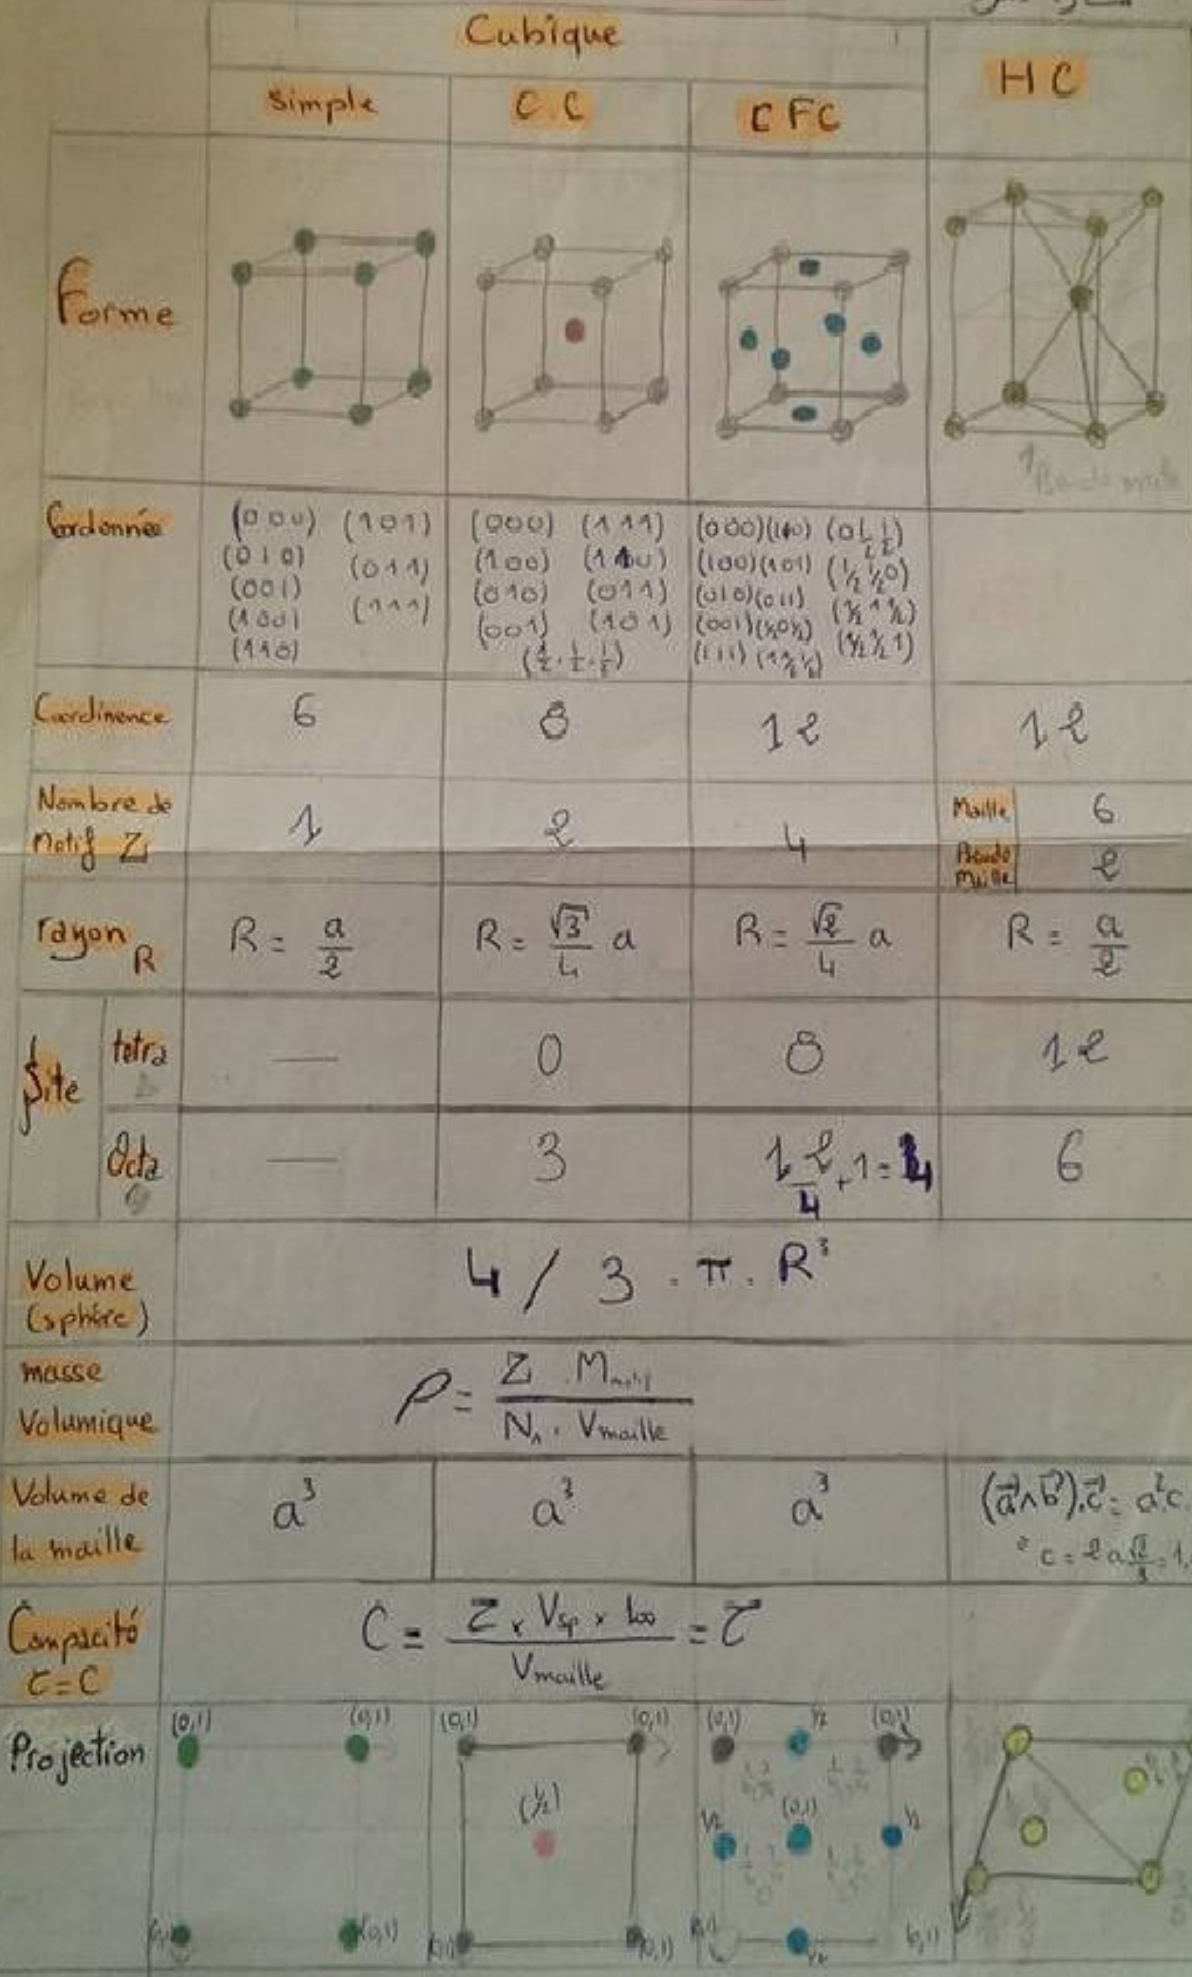 Cubique
H C
simple
C.C
CFC
Forme
Cordonnée
(000) (101)
(010)
(011)
(001)
(100)
(111)
(110)
(000) (111)
(100) (110)
(010) (011)
(001) (101)
(1/2.1/2.1/2)
(000)(110) (0 1/2 1/2)
(100)(101) (1/2 1/2 0)
(010)(011) (1/2 1 1/2)
(001)(1/2 0 1/2)
(111)(1 1/2 1/2) (1/2 1/2 1)
Coordinence
6
8
12
12
Nombre de
motif Z
1
2
4
Maille 6
Maille 2
rayon R
R = a/2
R = √3/4 a
R = √2/4 a
R = a/2
Site
tetra
—
0
8
12
Octa
—
3
12/4 + 1 = 4
6
Volume
(sphère)
4 / 3 . π . R³
masse
Volumique
ρ = Z . M / . Vmaille
Volume de
la maille
a³
a³
a³
(a⃗∧b⃗).c⃗ = a²c
Compacité
τ = C
C = Z × Vsp × 100 / Vmaille = τ
Projection
(0,1) (0,1)
(0,1)
(0,1) (0,1)
(1/2)
(0,1) (0,1)
(0,1) 1/2 (0,1)
1/2 (0,1) 1/2
1/2